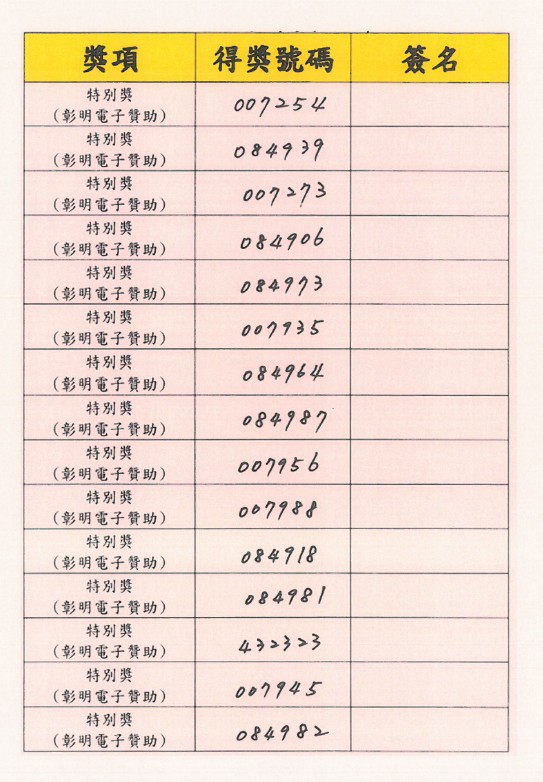 獎項 得獎號碼 簽名
特別獎
(彰明電子贊助) 007254
特別獎
(彰明電子贊助) 084939
特別獎
(彰明電子贊助) 007273
特別獎
(彰明電子贊助) 084906
特別獎
(彰明電子贊助) 084973
特別獎
(彰明電子贊助) 007935
特別獎
(彰明電子贊助) 084964
特別獎
(彰明電子贊助) 084987
特別獎
(彰明電子贊助) 007956
特別獎
(彰明電子贊助) 007988
特別獎
(彰明電子贊助) 084918
特別獎
(彰明電子贊助) 084981
特別獎
(彰明電子贊助) 432323
特別獎
(彰明電子贊助) 007945
特別獎
(彰明電子贊助) 084982